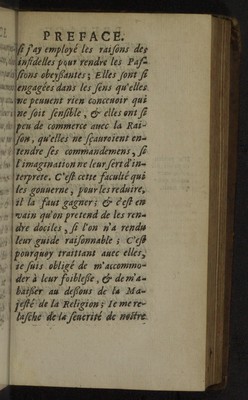 PREFACE.
si j'ay employé les raisons des
infidelles pour rendre les Pas-
sions obeyssantes ; Elles sont si
engagées dans les sens qu'elles
ne peuuent rien conceuoir qui
ne soit sensible, & elles ont si
peu de commerce auec la Rai-
son, qu'elles ne sçauroient en-
tendre ses commandemens, si
l'imagination ne leur sert d'in-
terprete. C'est cette faculté qui
les gouuerne, pour les reduire,
il la faut gagner ; & c'est en
vain qu'on pretend de les ren-
dre dociles, si l'on n'a rendu
leur guide raisonnable ; C'est
pourquoy traittant auec elles,
ie suis obligé de m'accommo-
der à leur foiblesse, & de m'a-
baisser au dessous de la Ma-
jesté de la Religion ; Ie me re-
lasche de la seuerité de nostre